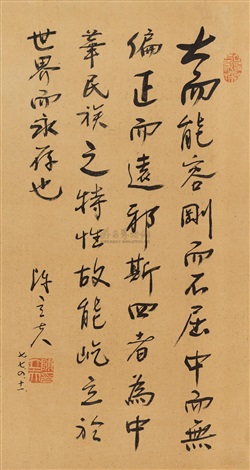 大而能容剛而不屈中而無
偏正而遠邪斯四者為中
華民族之特性故能屹立於
世界而永存也
陳立夫
七七、四、十二